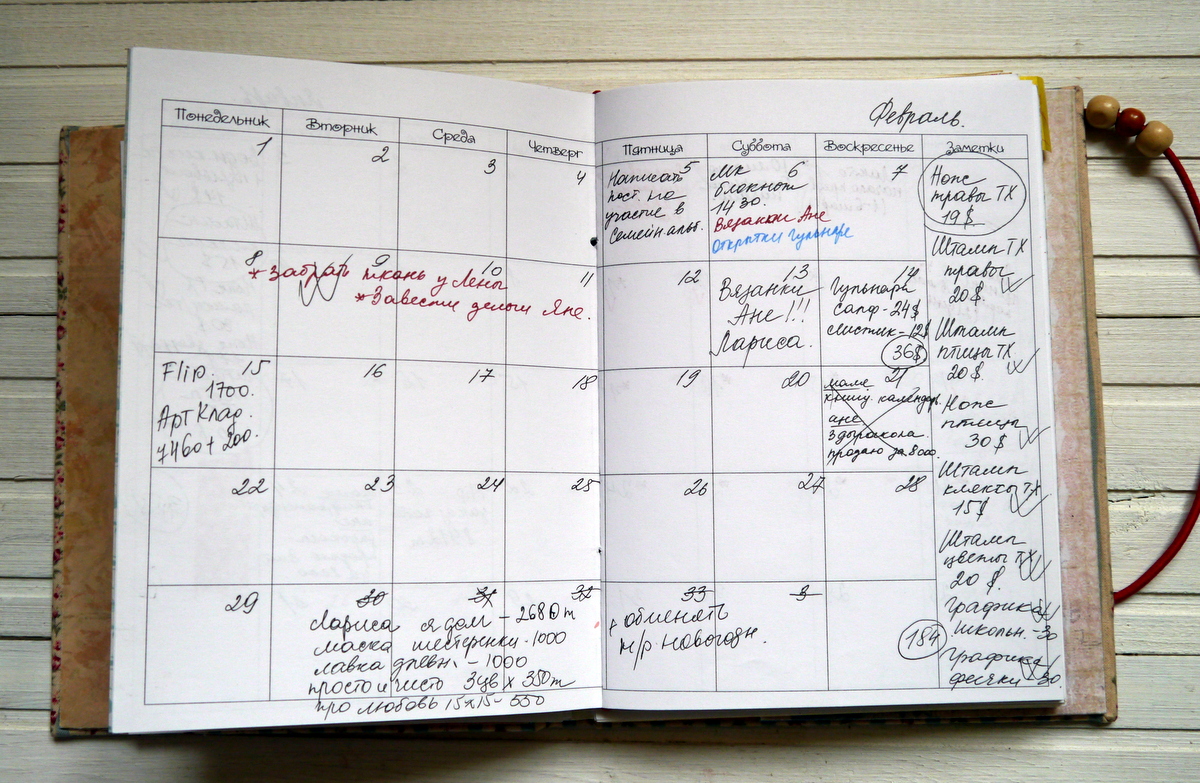 Февраль.
Понедельник
Вторник
Среда
Четверг
Пятница
Суббота
Воскресенье
Заметки
1
2
3
4
5
Написать
пост на
участие в
Семейн альб.
6
МК
блокноты
1430.
Вязанки Ане
Открытки Гульнаре
7
8
9
10
11
* Забрать ткань у Лены
* Завести деньги Яне.
12
13
Вязанки
Ане!!!
Лариса.
14
Гульнара
сапф-24$
мистик-12$
36$
15
Flip.
1700.
Арт Клад.
7460+200.
16
17
18
19
20
21
маме
календар.
ане
3 дырокола
продаю за 8000.
22
23
24
25
26
27
28
29
30
31
32
33
Лариса я долг - 2680т
маска шестеренки - 1000
лавка дневн. - 1000
просто и чисто 3цв х 350т
про любовь 15х15-550
+ обменять
н/р новогодн.
Нож
травы ТХ
19$
Штамп ТХ
травы
20$.
Штамп
птицы ТХ
20$.
Нож
птицы
30$
Штамп
ТХ
15$
Штамп
цветы ТХ
20$.
Графика
школьн. - 30
Графика
30
184